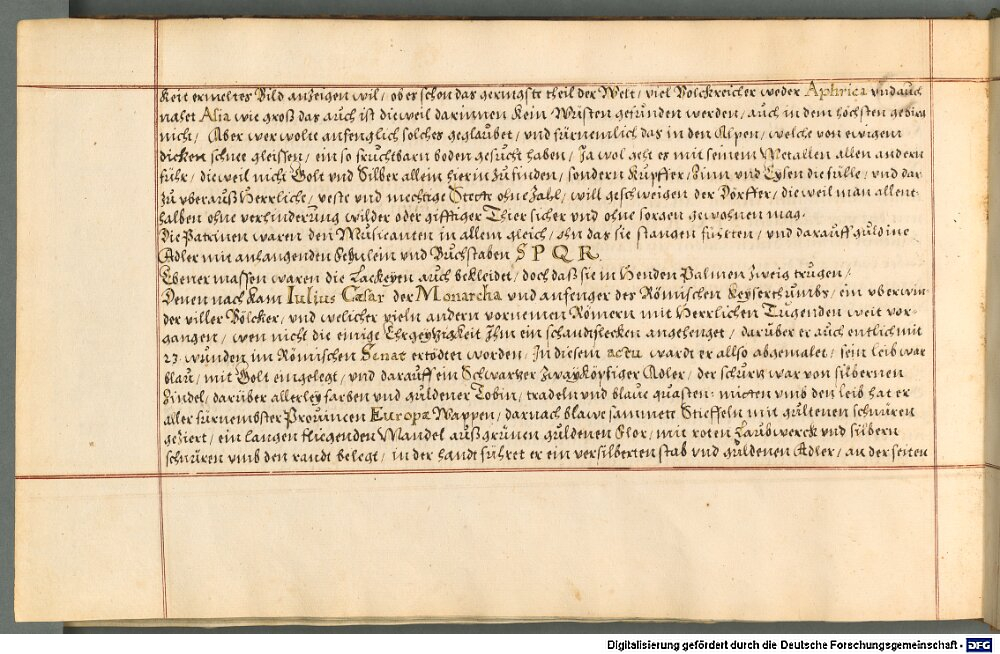 keit ermeltes Bild anzeigen wil / ob es schon das geringste theil der Welt / viel Volckreicher weder Aphrica vnd auch
nahet Asia wie groß das auch ist die weil darinnen kein Wüsten gefunden werden / auch in dem höchsten gebirg
nicht / Aber wer wolte anfenglich solches geglaubet / vnd fürnemlich das in den Alpen / welche von ewigem
dicken schnee gleissen / ein so fruchtbarn boden gesucht haben / Ja wol geht es mit seinem Metallen allen andern
führ / die weil nicht Golt vnd Silber allein hierin zu finden / sondern Kupffer / Zinn vnd Eysen die fülle / vnd dar
zu vberauß Herrliche / veste vnd mechtige Stette ohne Zahl / will geschweigen der Dörffer / die weil man allent
halben ohne verhinderung wilder oder gifftiger Thier sicher vnd ohne sorgen gewohnen mag.
Die Patrinen waren den Musicanten in allem gleich / ohn das sie stangen führten / vnd darauff guldine
Adler mit anhangenden Schilein vnd Buchstaben S P Q R.
Ebener massen waren die Lackeyen auch bekleidet / doch daß sie in Henden Palmen zweig trugen /
Denen nach kam Iulius Cæsar der Monarcha vnd anfenger des Römischen Keyserthumbs / ein vberwin
der viller Völcker / vnd welicher vieln andern vornemen Römern mit Herrlichen Tugenden weit vor-
gangen / wen nicht die einige Ehrgeytzigkeit Ihm ein schandtflecken angehenget / darüber er auch entlich mit
23 wunden im Römischen Senat ertödtet worden / In diesem actu wardt er allso abgemalet / sein leib war
blau / mit Golt eingelegt / vnd darauff ein Schwartzer Zwayköpfiger Adler / der schurtz war von silbernen
Zindel / darüber allerley farben vnd guldener Tobin / tradeln vnd blaue quasten: mitten vmb den leib hat er
aller fürnembster Prouincen Europæ Wappen / darnach blawe sammett Stieffeln mit gultenen schnüren
geziert / ein langen fliegenden Mandel auß grünen guldenen Flor / mit roten Laubwerck vnd silbern
schnüren vmb den randt belegt / in der handt führet er ein versilberten stab vnd guldenen Adler / an der seiten
Digitalisierung gefördert durch die Deutsche Forschungsgemeinschaft - DFG